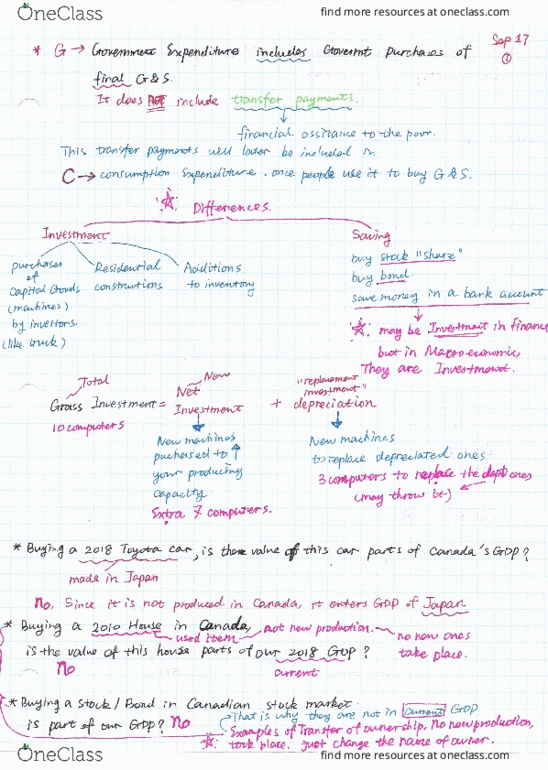 OneClass
find more resources at oneclass.com
Sep 17
①
* G → Government Expenditure includes Govermt purchases of
final G&S.
It does NOT include transfer payments.
↓
financial assitance to the poor.
This transfer payments will later be included in
C → consumption Expenditure. once people use it to buy G&S.
☆: Differences.
Investment
Saving
purchases
of
Capital Goods
(machines)
by investors.
(like truck)
Residential
constructions
Additions
to inventory
buy stock "share"
buy bond.
save money in a bank account
☆: may be Investment in finance
but in Macroeconomic,
They are Investment.
Total
New
"replacement
investment"
Gross Investment = Net Investment + depreciation
10 computers
New machines
purchased to ↑
your producing
capacity.
Extra 7 computers.
New machines
to replace depreciated ones.
3 computers to replace the dept ones
(may throw it)
* Buying a 2018 Toyota car, is the value of this car parts of Canada's GDP?
made in Japan
No, Since it is not produced in Canada, it enters GDP of Japan.
* Buying a 2010 House in Canada,
used item
not new production.
no new ones
take place.
is the value of this house parts of our 2018 GDP?
No
current
* Buying a Stock / Bond in Canadian stock market
is part of our GDP? No
That is why they are not in current GDP
☆: Examples of Transfer of ownership, No new production,
took place. just change the name of owner.
OneClass
find more resources at oneclass.com